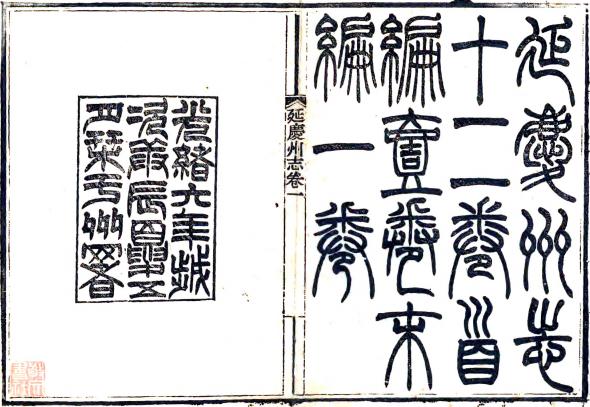 延慶州志
十二卷首
編壹卷末
編一卷
延慶州志卷
光緒六年歲
次庚辰
栞于州署